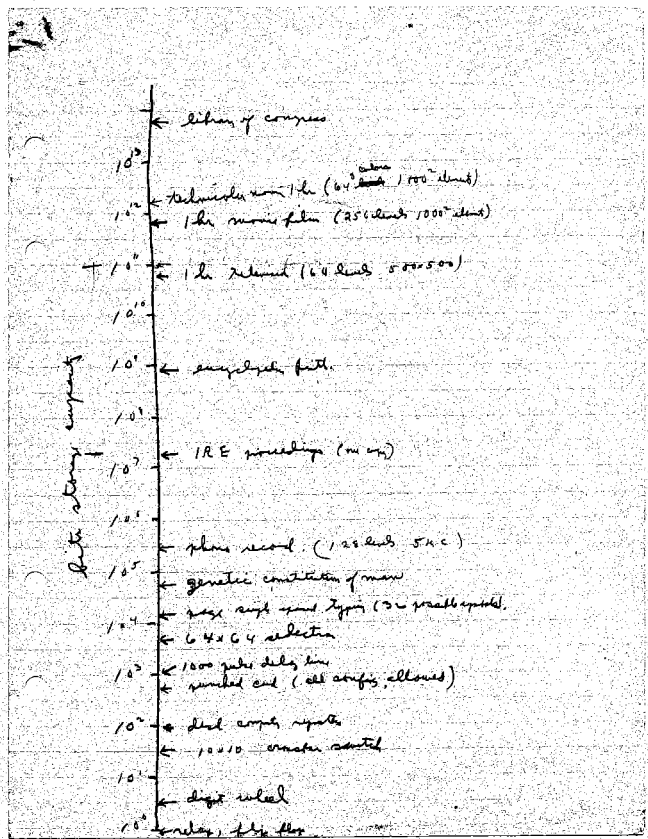 library of congress
10¹³
technicolor movie 1 hr (64³ colors 1000² elements)
10¹²
1 hr movie film (256 levels 1000² element)
10¹¹
1 hr (64 levels 500x500)
10¹⁰
10⁹
encyclopedia britt.
10⁸
IRE proceedings (one copy)
10⁷
bits storage capacity
10⁶
phono record. (128 levels 5 KC)
10⁵
genetic constitution of man
page single space typing (32 possible symbols)
10⁴
64 x 64 selection
1000 pulse delay line
10³
punched card (all config. allowed)
10²
desk register
10x10 crossbar switch
10¹
digit wheel
10⁰
relay, flip flop